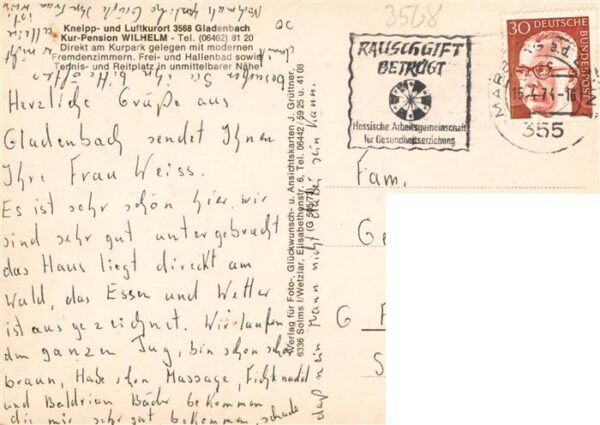 3568
Kneipp- und Luftkurort 3568 Gladenbach
Kur-Pension WILHELM - Tel. (06462) 81 20
Direkt am Kurpark gelegen mit modernen
Fremdenzimmern. Frei- und Hallenbad sowie
Tennis- und Reitplatz in unmittelbarer Nähe
Herzliche Grüße aus
Gladenbach sendet Ihnen
Ihre Frau Weiss.
Es ist sehr schön hier, wir
sind sehr gut untergebracht
das Haus liegt direkt am
Wald, das Essen und Wetter
ist ausgezeichnet. Wir laufen
den ganzen Tag, bin schon schön
braun, Habe schon Massage, Fichtnadel
und Baldrian Bäder bekommen
die mir sehr gut bekommen, schade
daß mein Mann nicht dabei sein kann.
Verlag für Foto-, Glückwunsch- u. Ansichtskarten J. Grüttner,
6336 Solms l/Wetzlar, Elisabethenstr. 6, Tel. 06442/59 25 u. 41 08
RAUSCHGIFT
BETRÜGT
Hessische Arbeitsgemeinschaft
für Gesundheitserziehung
30
DEUTSCHE BUNDESPOST
MARB
355
Fam.
G
G
S